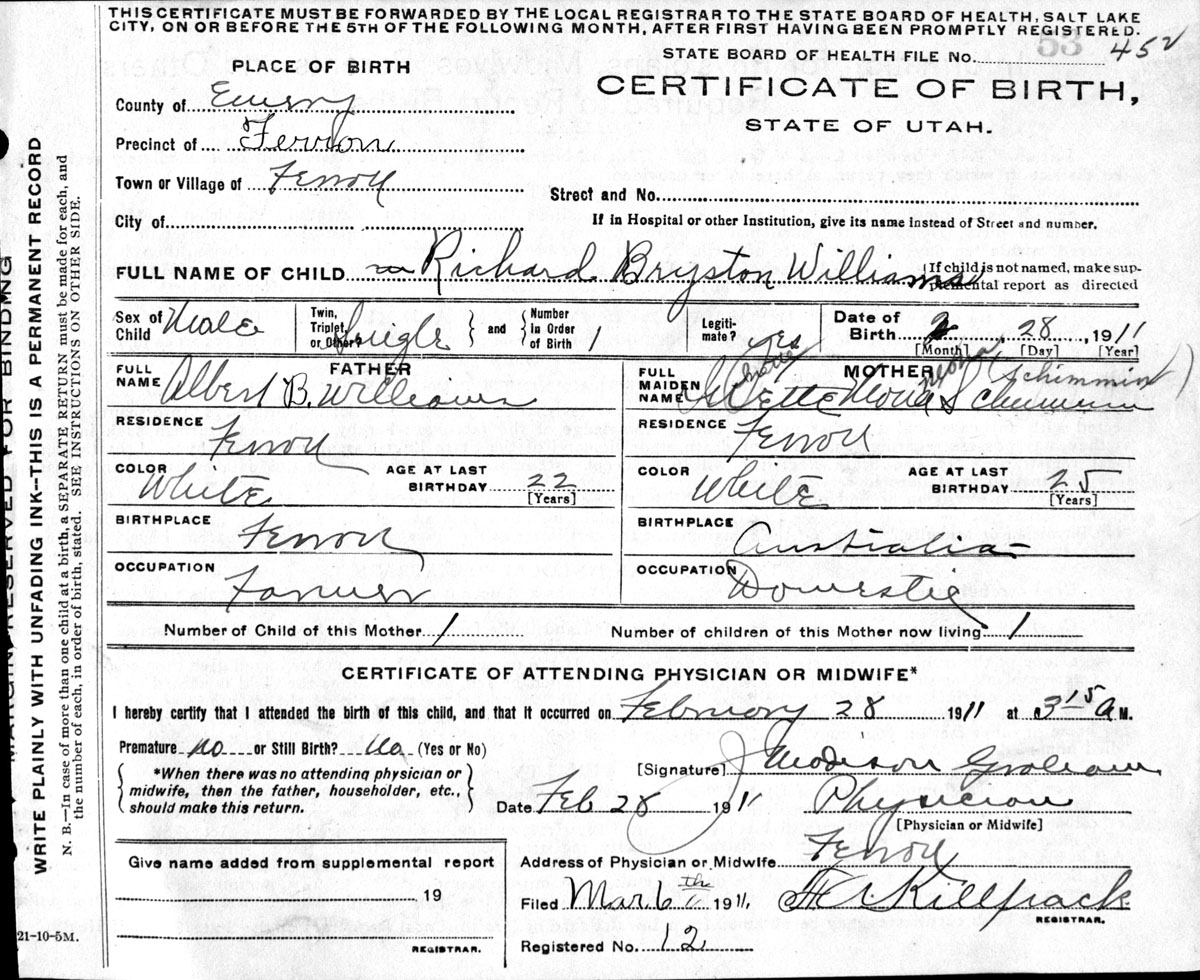 THIS CERTIFICATE MUST BE FORWARDED BY THE LOCAL REGISTRAR TO THE STATE BOARD OF HEALTH, SALT LAKE
CITY, ON OR BEFORE THE 5TH OF THE FOLLOWING MONTH, AFTER FIRST HAVING BEEN PROMPTLY REGISTERED.
53
STATE BOARD OF HEALTH FILE No. 452
PLACE OF BIRTH
CERTIFICATE OF BIRTH,
STATE OF UTAH.
County of Emery
Precinct of Ferron
Town or Village of Ferron
Street and No.
City of
If in Hospital or other Institution, give its name instead of Street and number.
FULL NAME OF CHILD Richard Bryston Williams
If child is not named, make supplemental report as directed
Sex of Child Male
Twin, Triplet, or Other Single and Number in Order of Birth 1
Legitimate? yes
Date of Birth 2 28, 1911
[Month] [Day] [Year]
FATHER
FULL NAME Albert B. Williams
RESIDENCE Ferron
COLOR White AGE AT LAST BIRTHDAY 22
[Years]
BIRTHPLACE Ferron
OCCUPATION Farmer
MOTHER
FULL MAIDEN NAME Mona Schimmin
(Schimmin)
RESIDENCE Ferron
COLOR White AGE AT LAST BIRTHDAY 25
[Years]
BIRTHPLACE Australia
OCCUPATION Domestic
Number of Child of this Mother 1 Number of children of this Mother now living 1
CERTIFICATE OF ATTENDING PHYSICIAN OR MIDWIFE*
I hereby certify that I attended the birth of this child, and that it occurred on February 28 1911 at 3 15 A M.
Premature no or Still Birth? No (Yes or No)
*When there was no attending physician or
midwife, then the father, householder, etc.,
should make this return.
[Signature] J Madison Graham
Date Feb 28 1911 Physician
[Physician or Midwife]
Give name added from supplemental report
19
REGISTRAR.
Address of Physician or Midwife Ferron
Filed Mar 6th 1911, Killpack
REGISTRAR.
Registered No. 12
21-10-5M.
MARGIN RESERVED FOR BINDING
WRITE PLAINLY WITH UNFADING INK—THIS IS A PERMANENT RECORD
N. B.—In case of more than one child at a birth, a SEPARATE RETURN must be made for each, and
the number of each, in order of birth, stated. SEE INSTRUCTIONS ON OTHER SIDE.